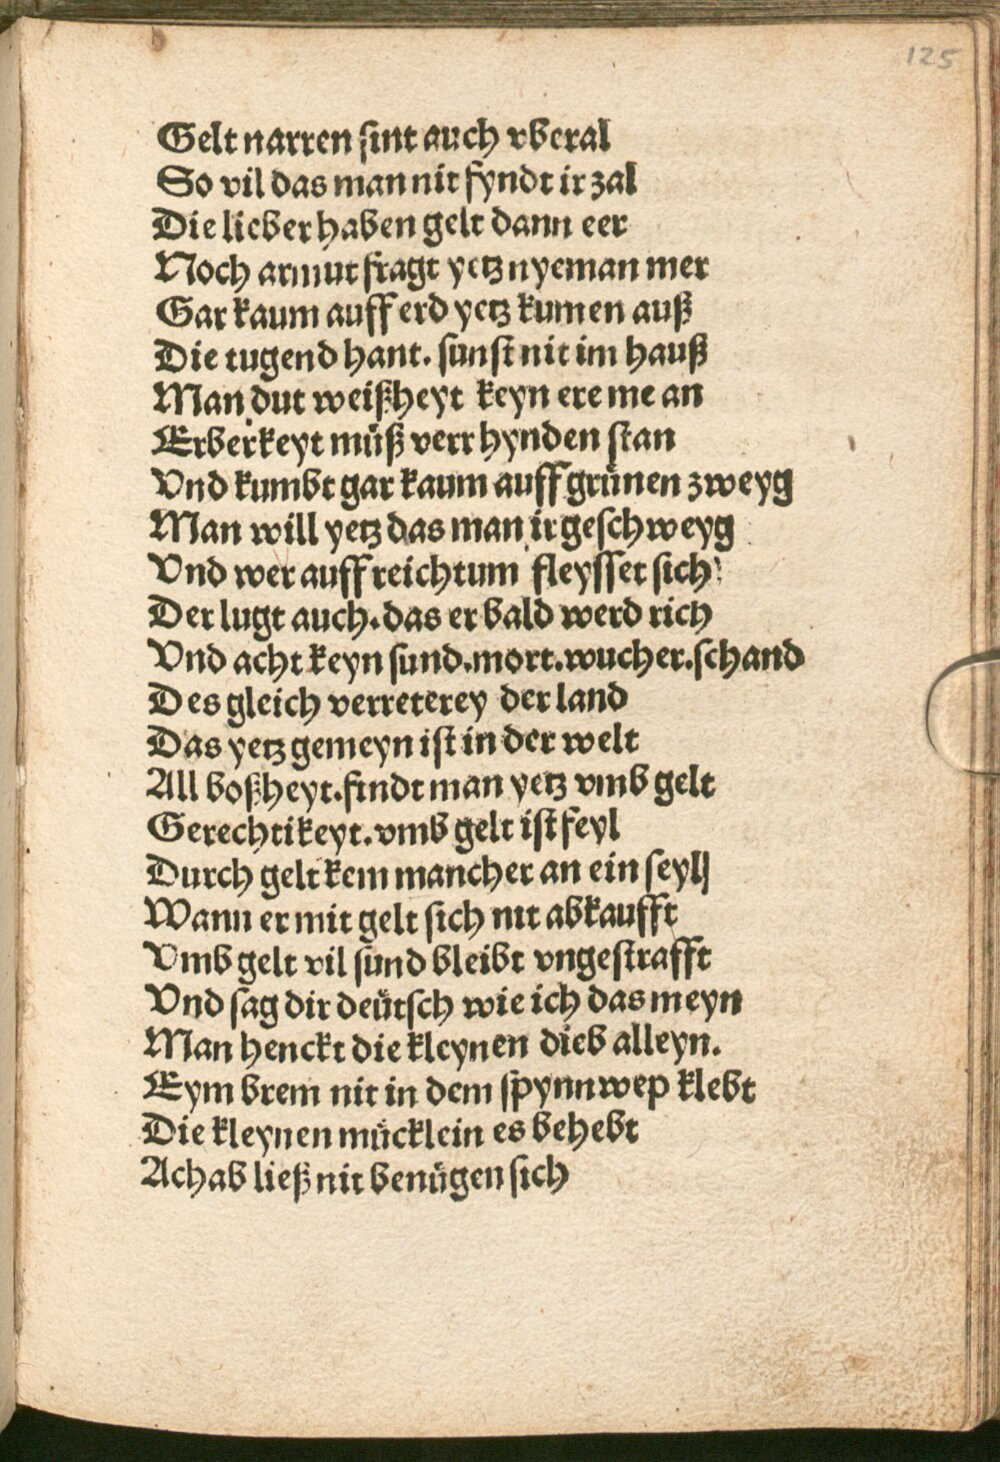 125
Gelt narren sint auch vberal
So vil das man nit fyndt ir zal
Die lieber haben gelt dann eer
Noch armut fragt yetz nyeman mer
Gar kaum auff erd yetz kumen auß
Die tugend hant. sunst nit im hauß
Man dut weißheyt keyn ere me an
Erberkeyt müß verr hynden stan
Vnd kumbt gar kaum auff grünen zweyg
Man will yetz das man ir geschweyg
Vnd wer auff reichtum fleysset sich
Der lugt auch. das er bald werd rich
Vnd acht keyn sund. mort. wucher. schand
Des gleich verreterey der land
Das yetz gemeyn ist in der welt
All boßheyt. findt man yetz vmb gelt
Gerechtikeyt. vmb gelt ist feyl
Durch gelt kem mancher an ein seyl
Wann er mit gelt sich nit abkaufft
Vmb gelt vil sünd bleibt vngestrafft
Vnd sag dir deütsch wie ich das meyn
Man henckt die kleynen dieb alleyn.
Eym brem nit in dem spynnwep klebt
Die kleynen mücklein es behebt
Achab ließ nit benügen sich